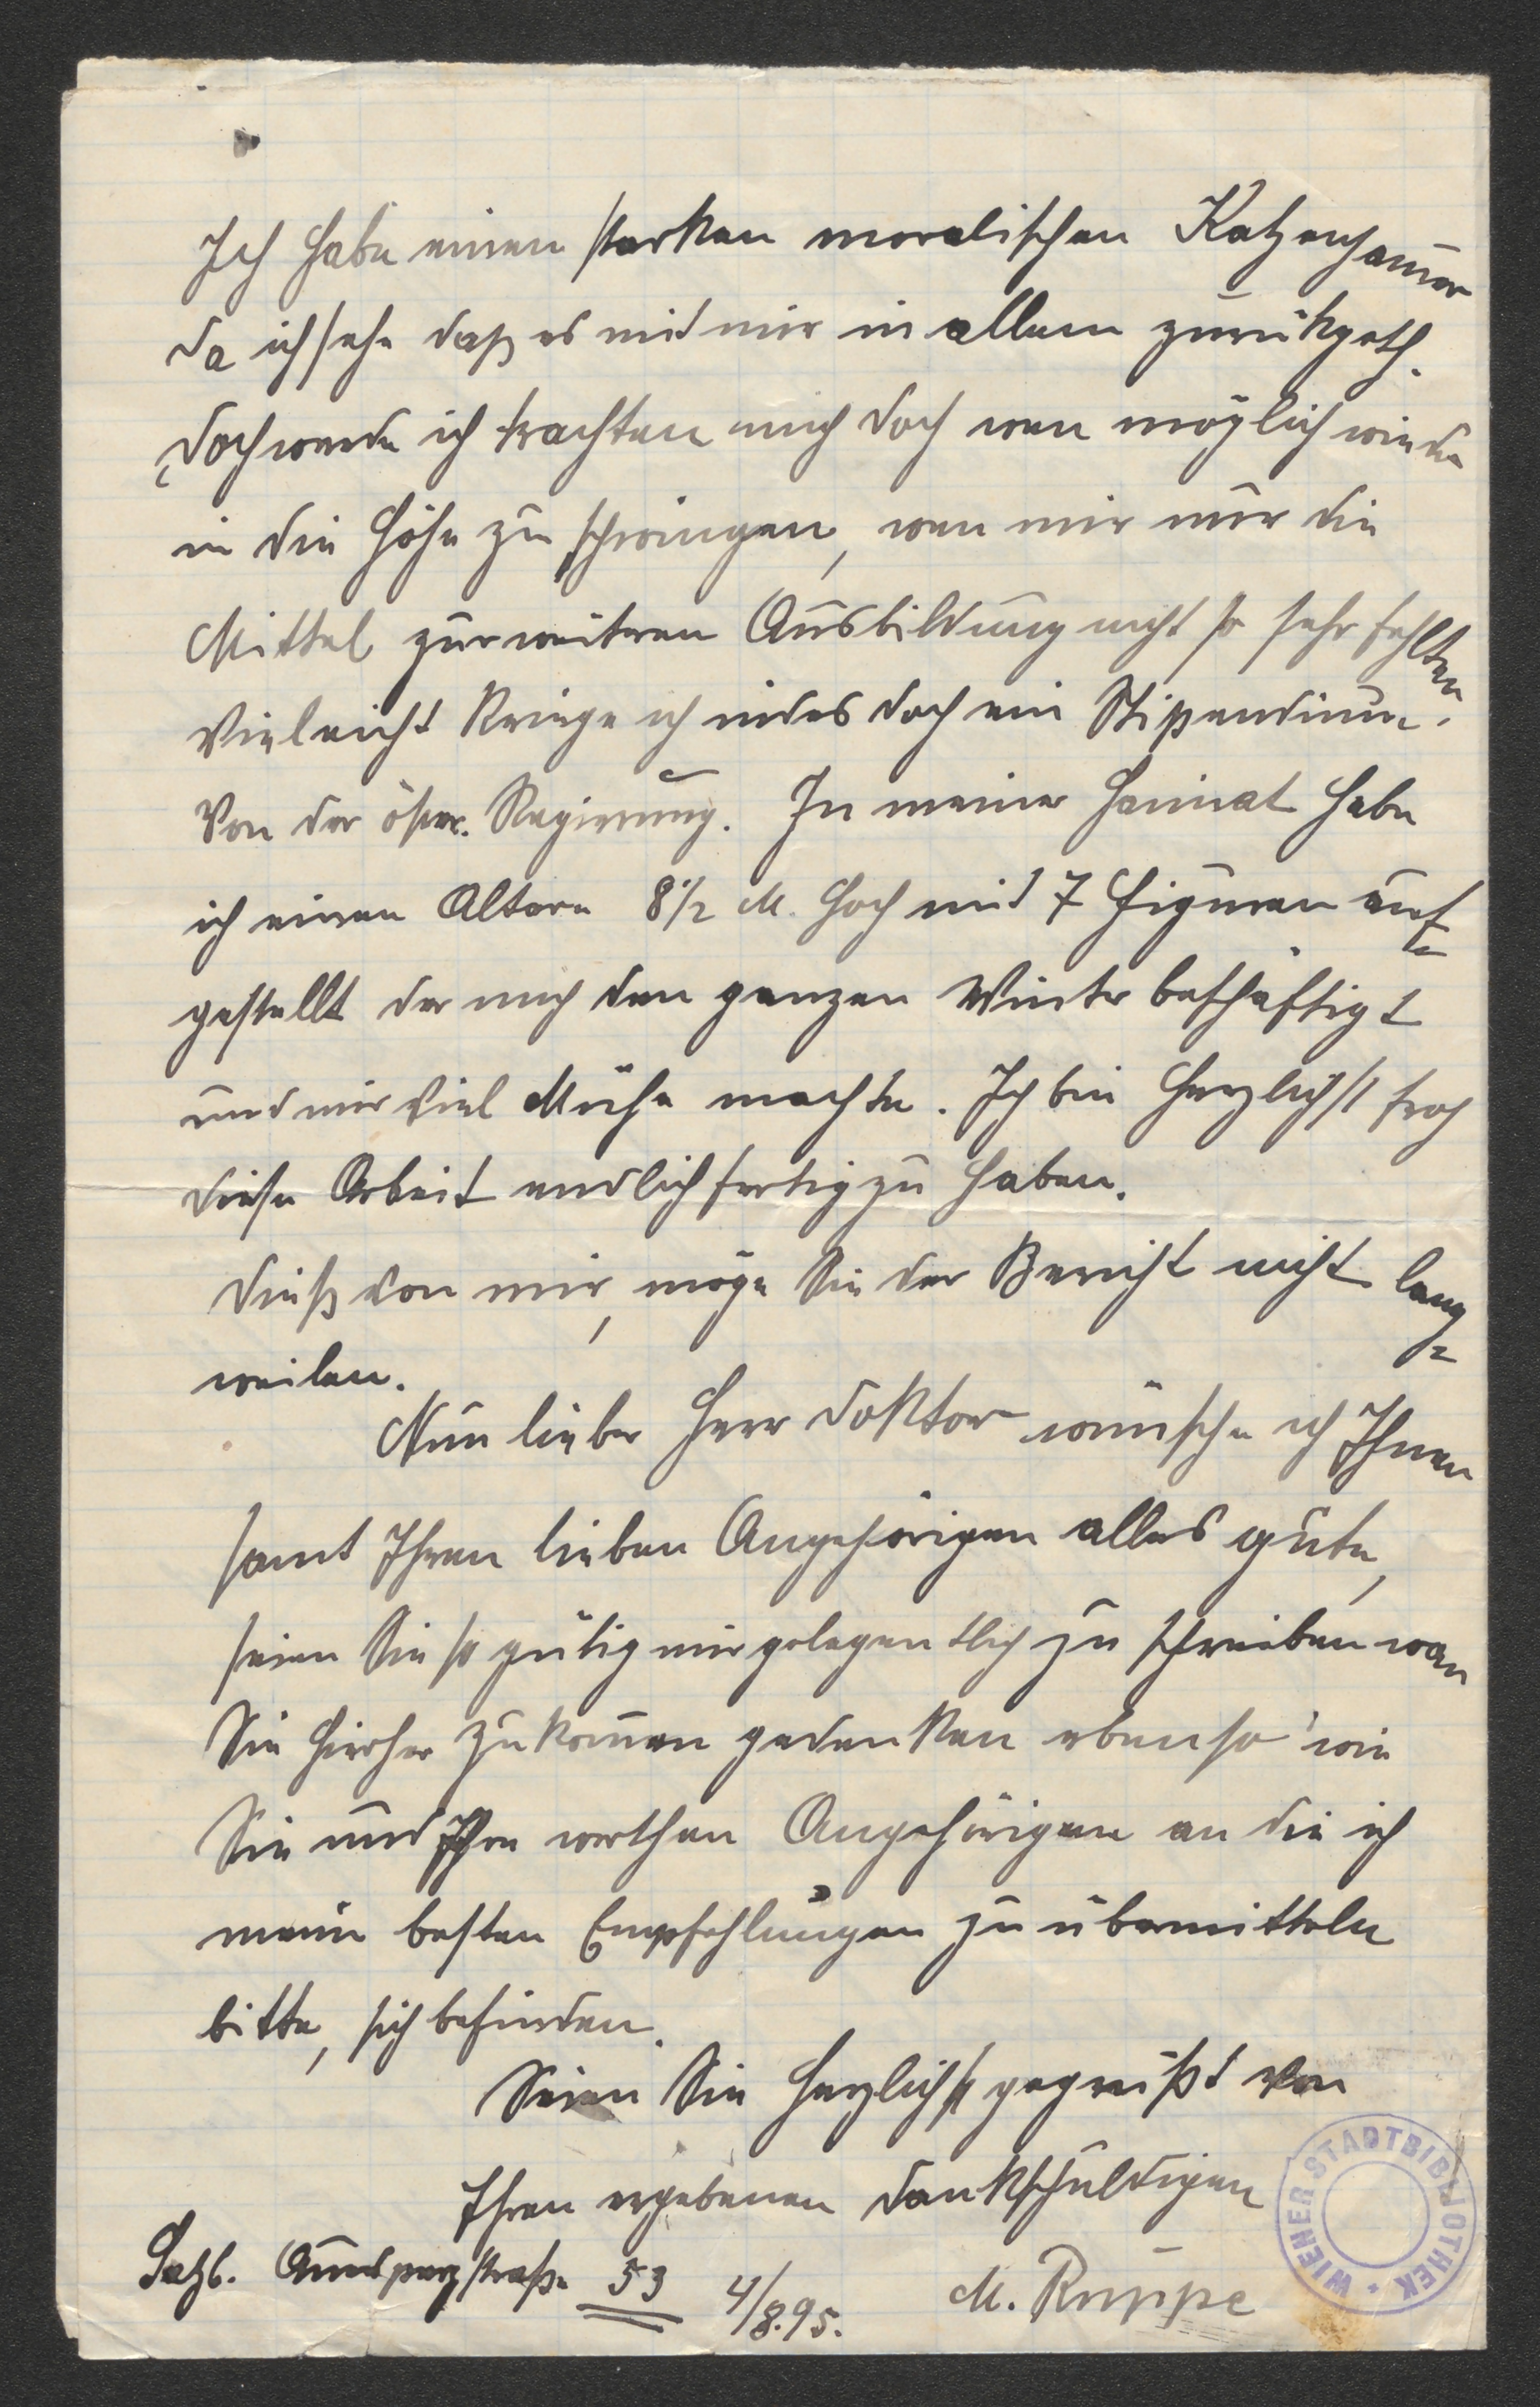 Ich habe einen starken moralischen Katzenjam̄er
da ich sehe daß es mit mir in allem zurükgeth.
Doch werde ich trachten mich doch wen möglich wieder
in die Höhe zu schwingen, wen mir nur die
Mittel zur weiteren Ausbildung nicht so sehr fehlten
Vieleicht kriege ich indes doch ein Stipendium.
Von der öster. Regierung. In meiner Heimat habe
ich einen Altare 8½ M. hoch mit 7 Figuren auf=
gestellt der mich den ganzen Winter beschäftigt
und mir viel Mühe machte. Ich bin herzlichst froh
diese Arbeit endlich fertig zu haben.
Dieß von mir, möge Sie der Bericht nicht lang=
weilen.
Nun lieber Herr Doktor wünsche ich Ihnen
samt Ihren lieben Angehörigen alles gute,
seien Sie so gütig mir gelegentlich zu schreiben wan
Sie hierher zu kom̄en gedenken ebenso wie
Sie und Ihre werthen Angehörigen an die ich
meine besten Empfehlungen zu übermitteln
bitte, sich befinden.
Seien Sie herzlichst gegrüßt von
Ihren ergebenen dankschuldigen
Salzb. Auerspergstraße 53 4/8.95. M. Ruppe
WIENER STADTBIBLIOTHEK